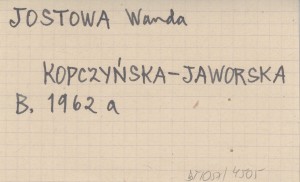 JOSTOWA Wanda
KOPCZYŃSKA-JAWORSKA
B. 1962 a